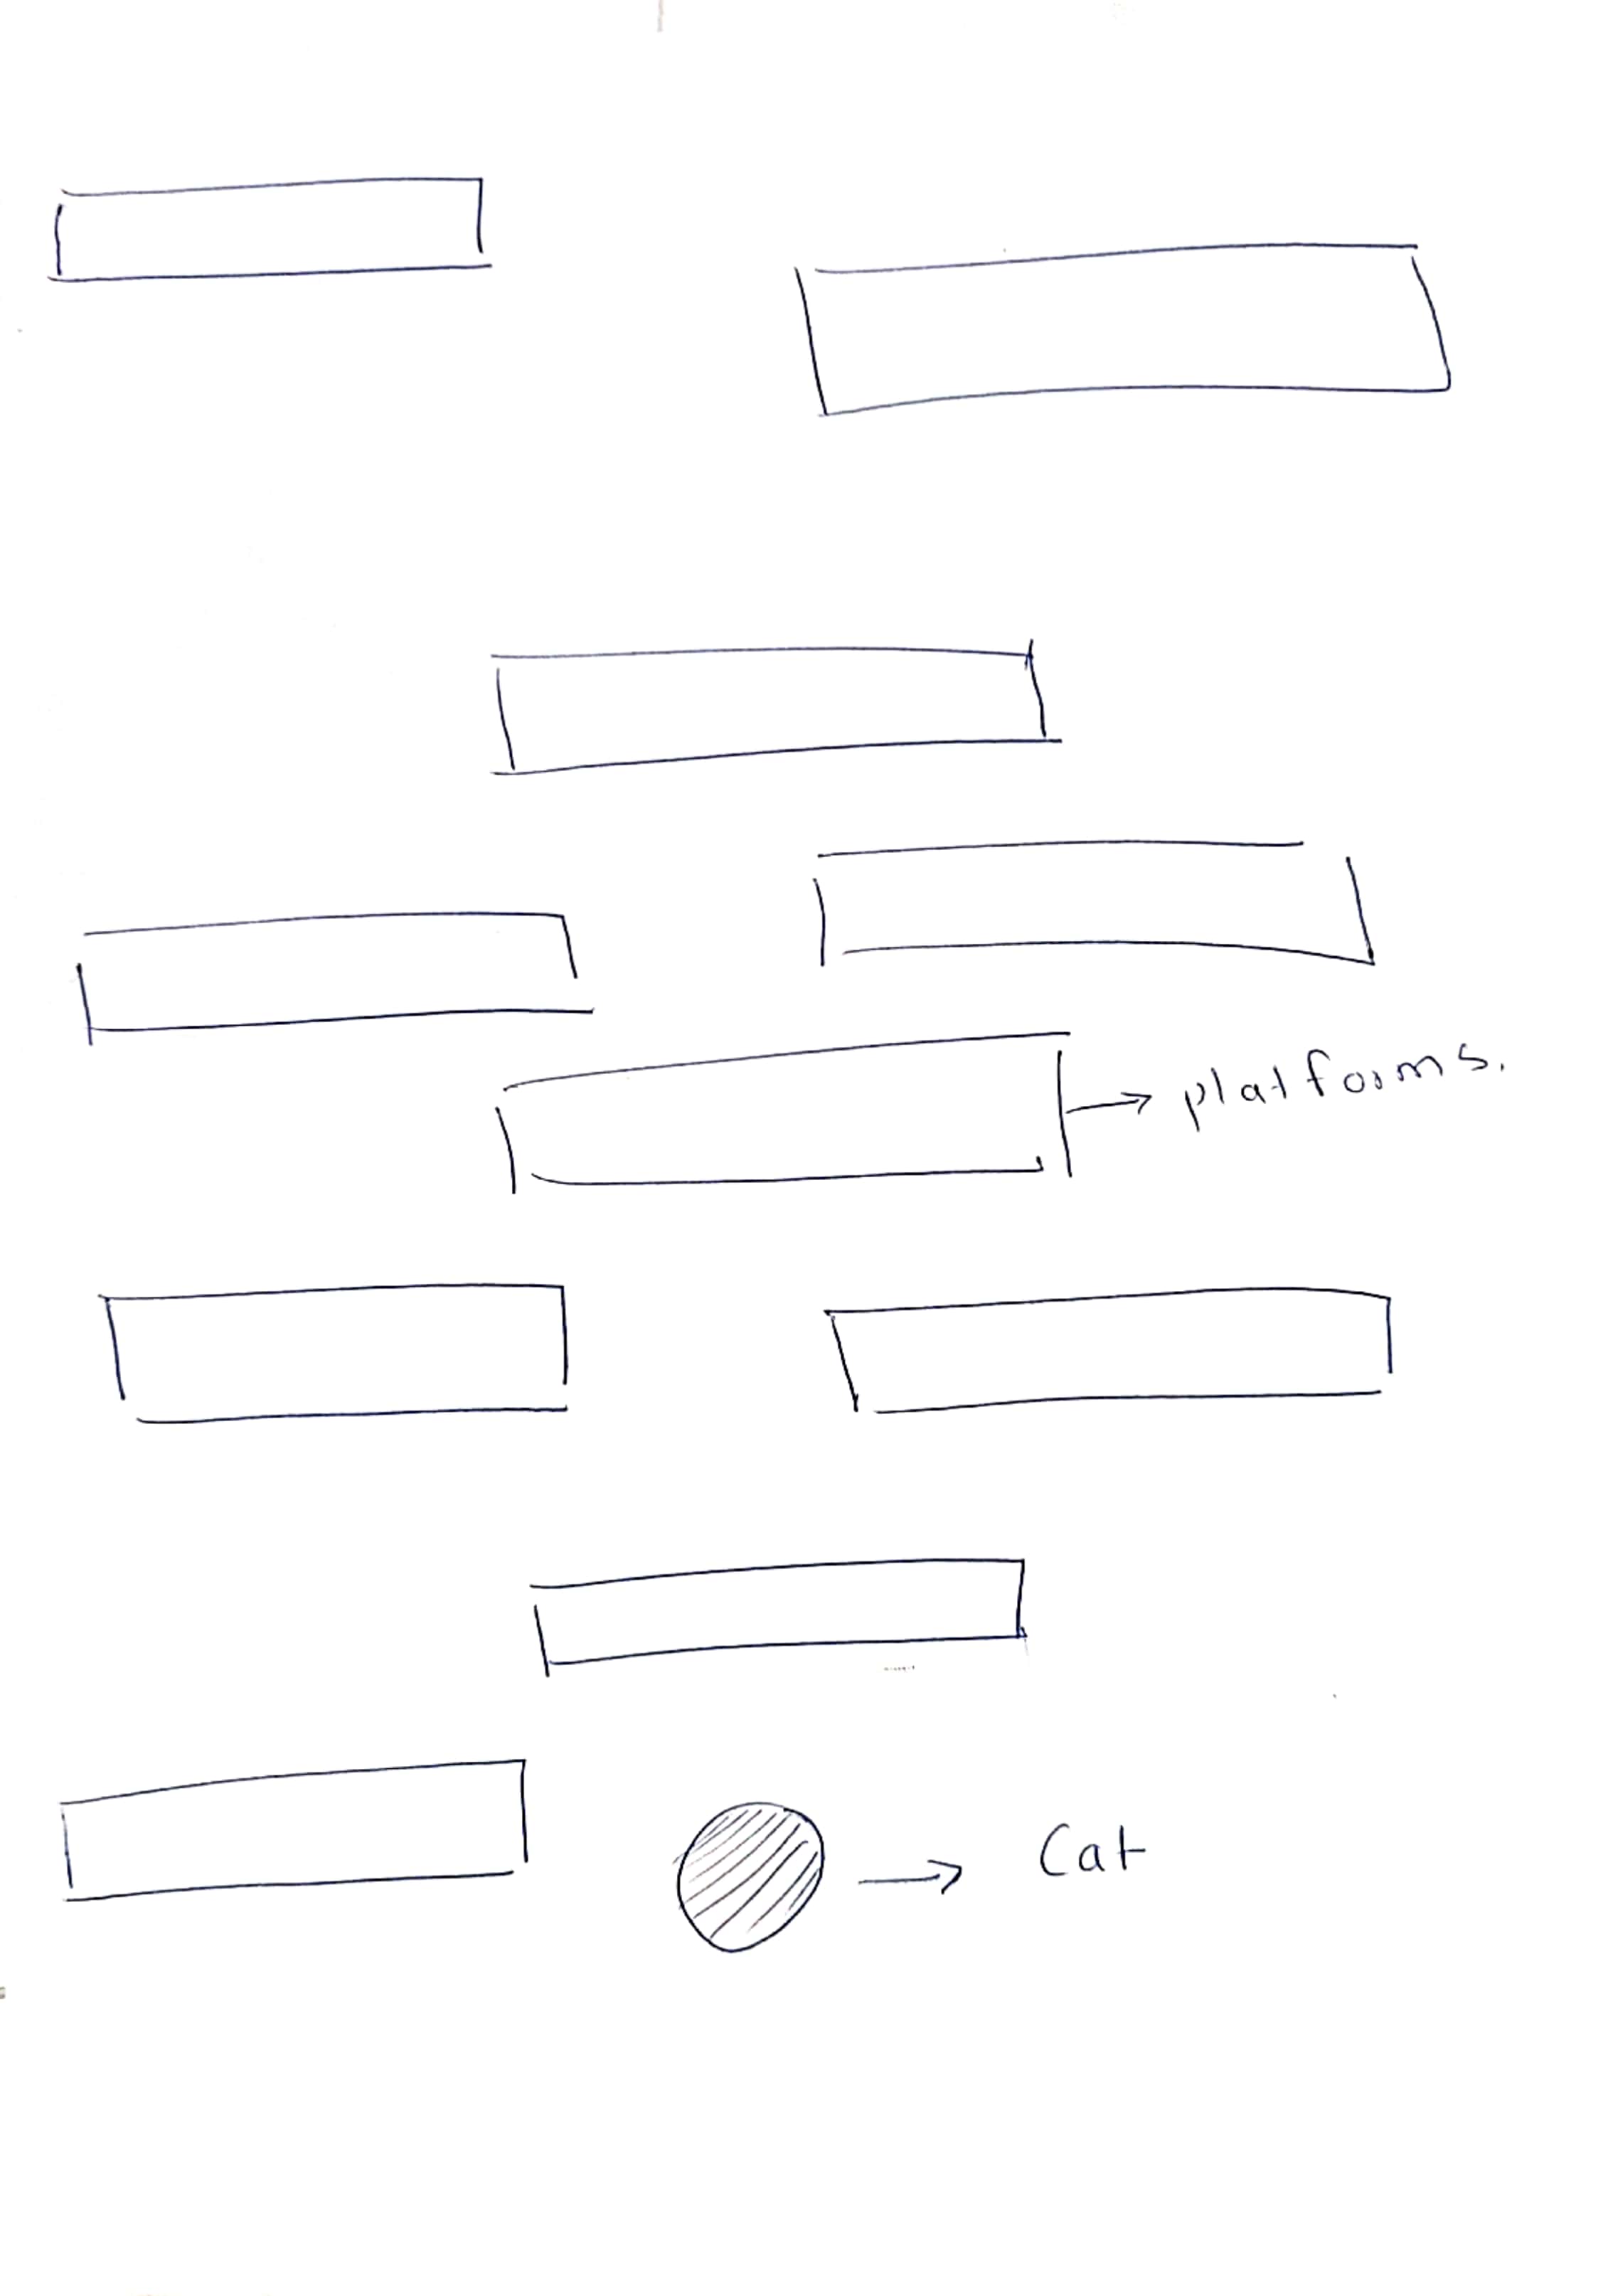 platforms.
Cat